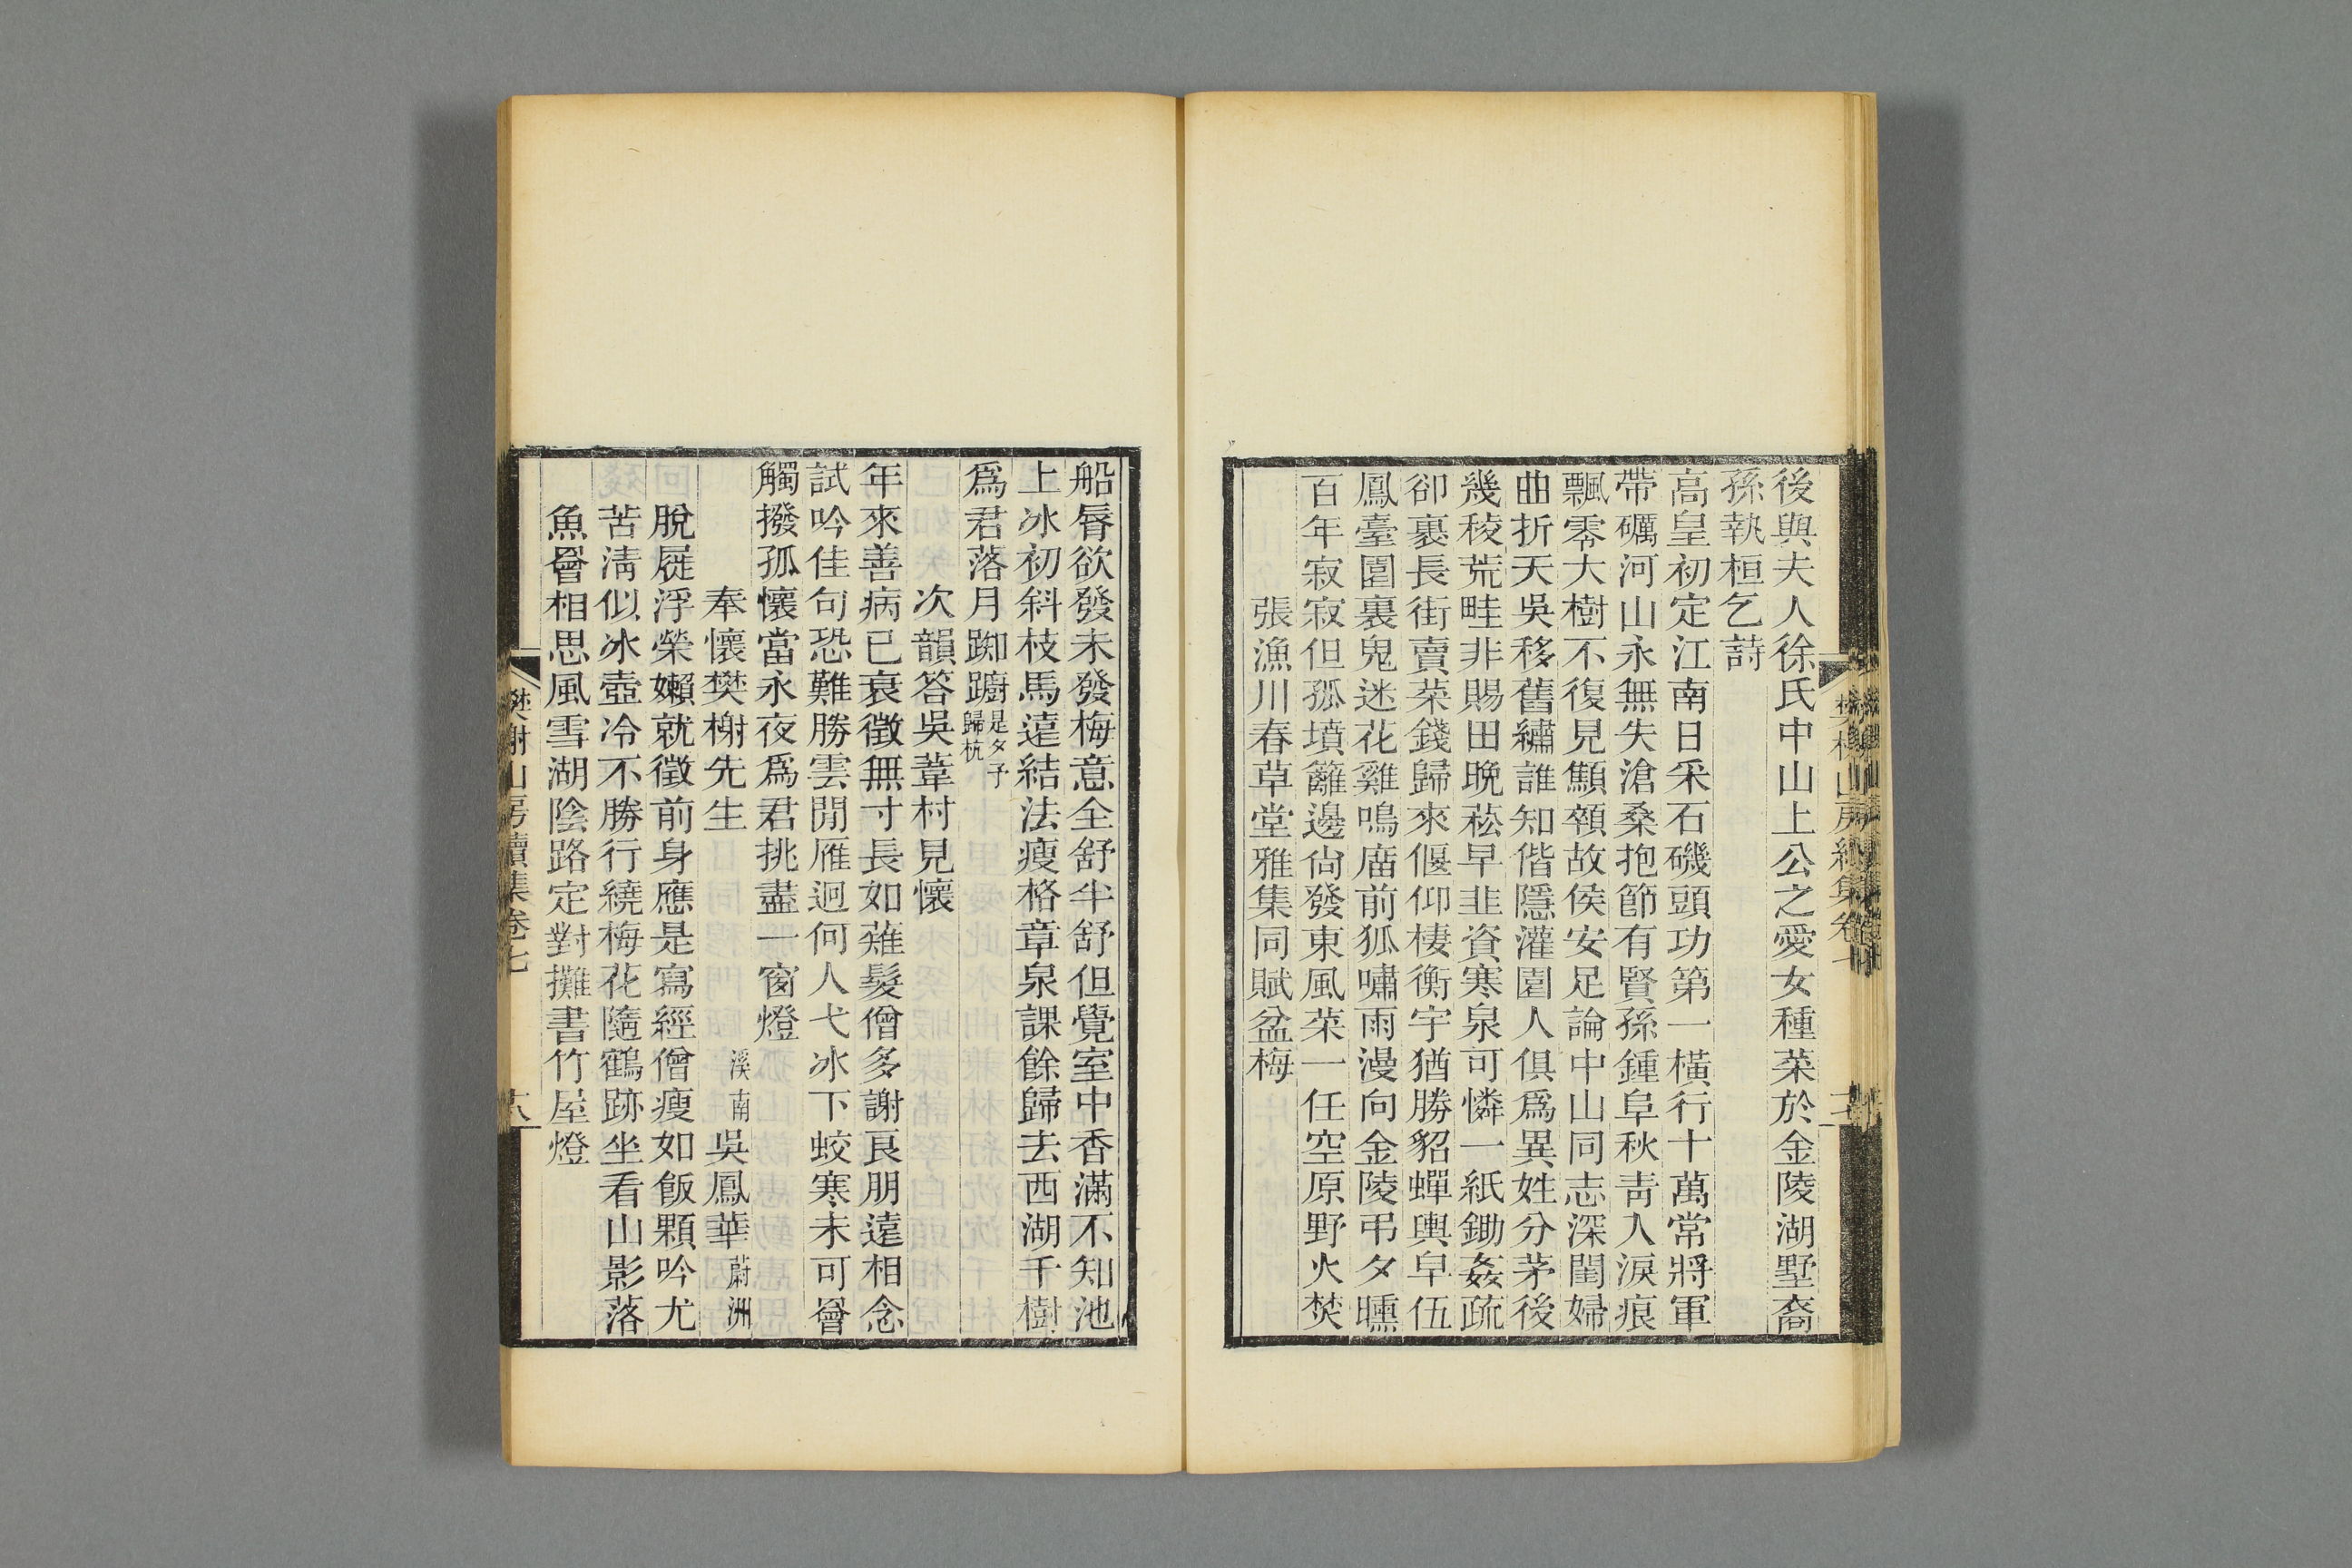 後與夫人徐氏中山上公之愛女種菜於金陵湖墅裔
孫執桓乞詩
高皇初定江南日采石磯頭功第一橫行十萬常將軍
帶礪河山永無失滄桑抱節有賢孫鍾阜秋靑入淚痕
飄零大樹不復見顦顇故侯安足論中山同志深閨婦
曲折天吳移舊繡誰知偕隱灌園人俱爲異姓分茅後
幾稜荒畦非賜田晩菘早韭資寒泉可憐一紙鋤姦疏
卻裹長街賣菜錢歸來偃仰棲衡宇猶勝貂蟬輿皁伍
鳳臺園裏鬼迷花雞鳴庿前狐嘯雨漫向金陵弔夕曛
百年寂寂但孤墳籬邊尙發東風菜一任空原野火焚
張漁川春草堂雅集同賦盆梅
船脣欲發未發梅意全舒半舒但覺室中香滿不知池
上冰初斜枝馬遠結法瘦格章泉課餘歸去西湖千樹
爲君落月踟躕是夕予歸杭
次韻答吳葦村見懷
年來善病已衰徵無寸長如薙髮僧多謝良朋遠相念
試吟佳句恐難勝雲閒雁迥何人弋冰下蛟寒未可罾
觸撥孤懷當永夜爲君挑盡一窗燈
奉懷樊榭先生 溪南吳鳳華蔚洲
脫屣浮榮嬾就徵前身應是寫經僧瘦如飯顆吟尤
苦淸似冰壺冷不勝行繞梅花隨鶴跡坐看山影落
魚罾相思風雪湖陰路定對攤書竹屋燈
樊榭山房續集卷七
十八